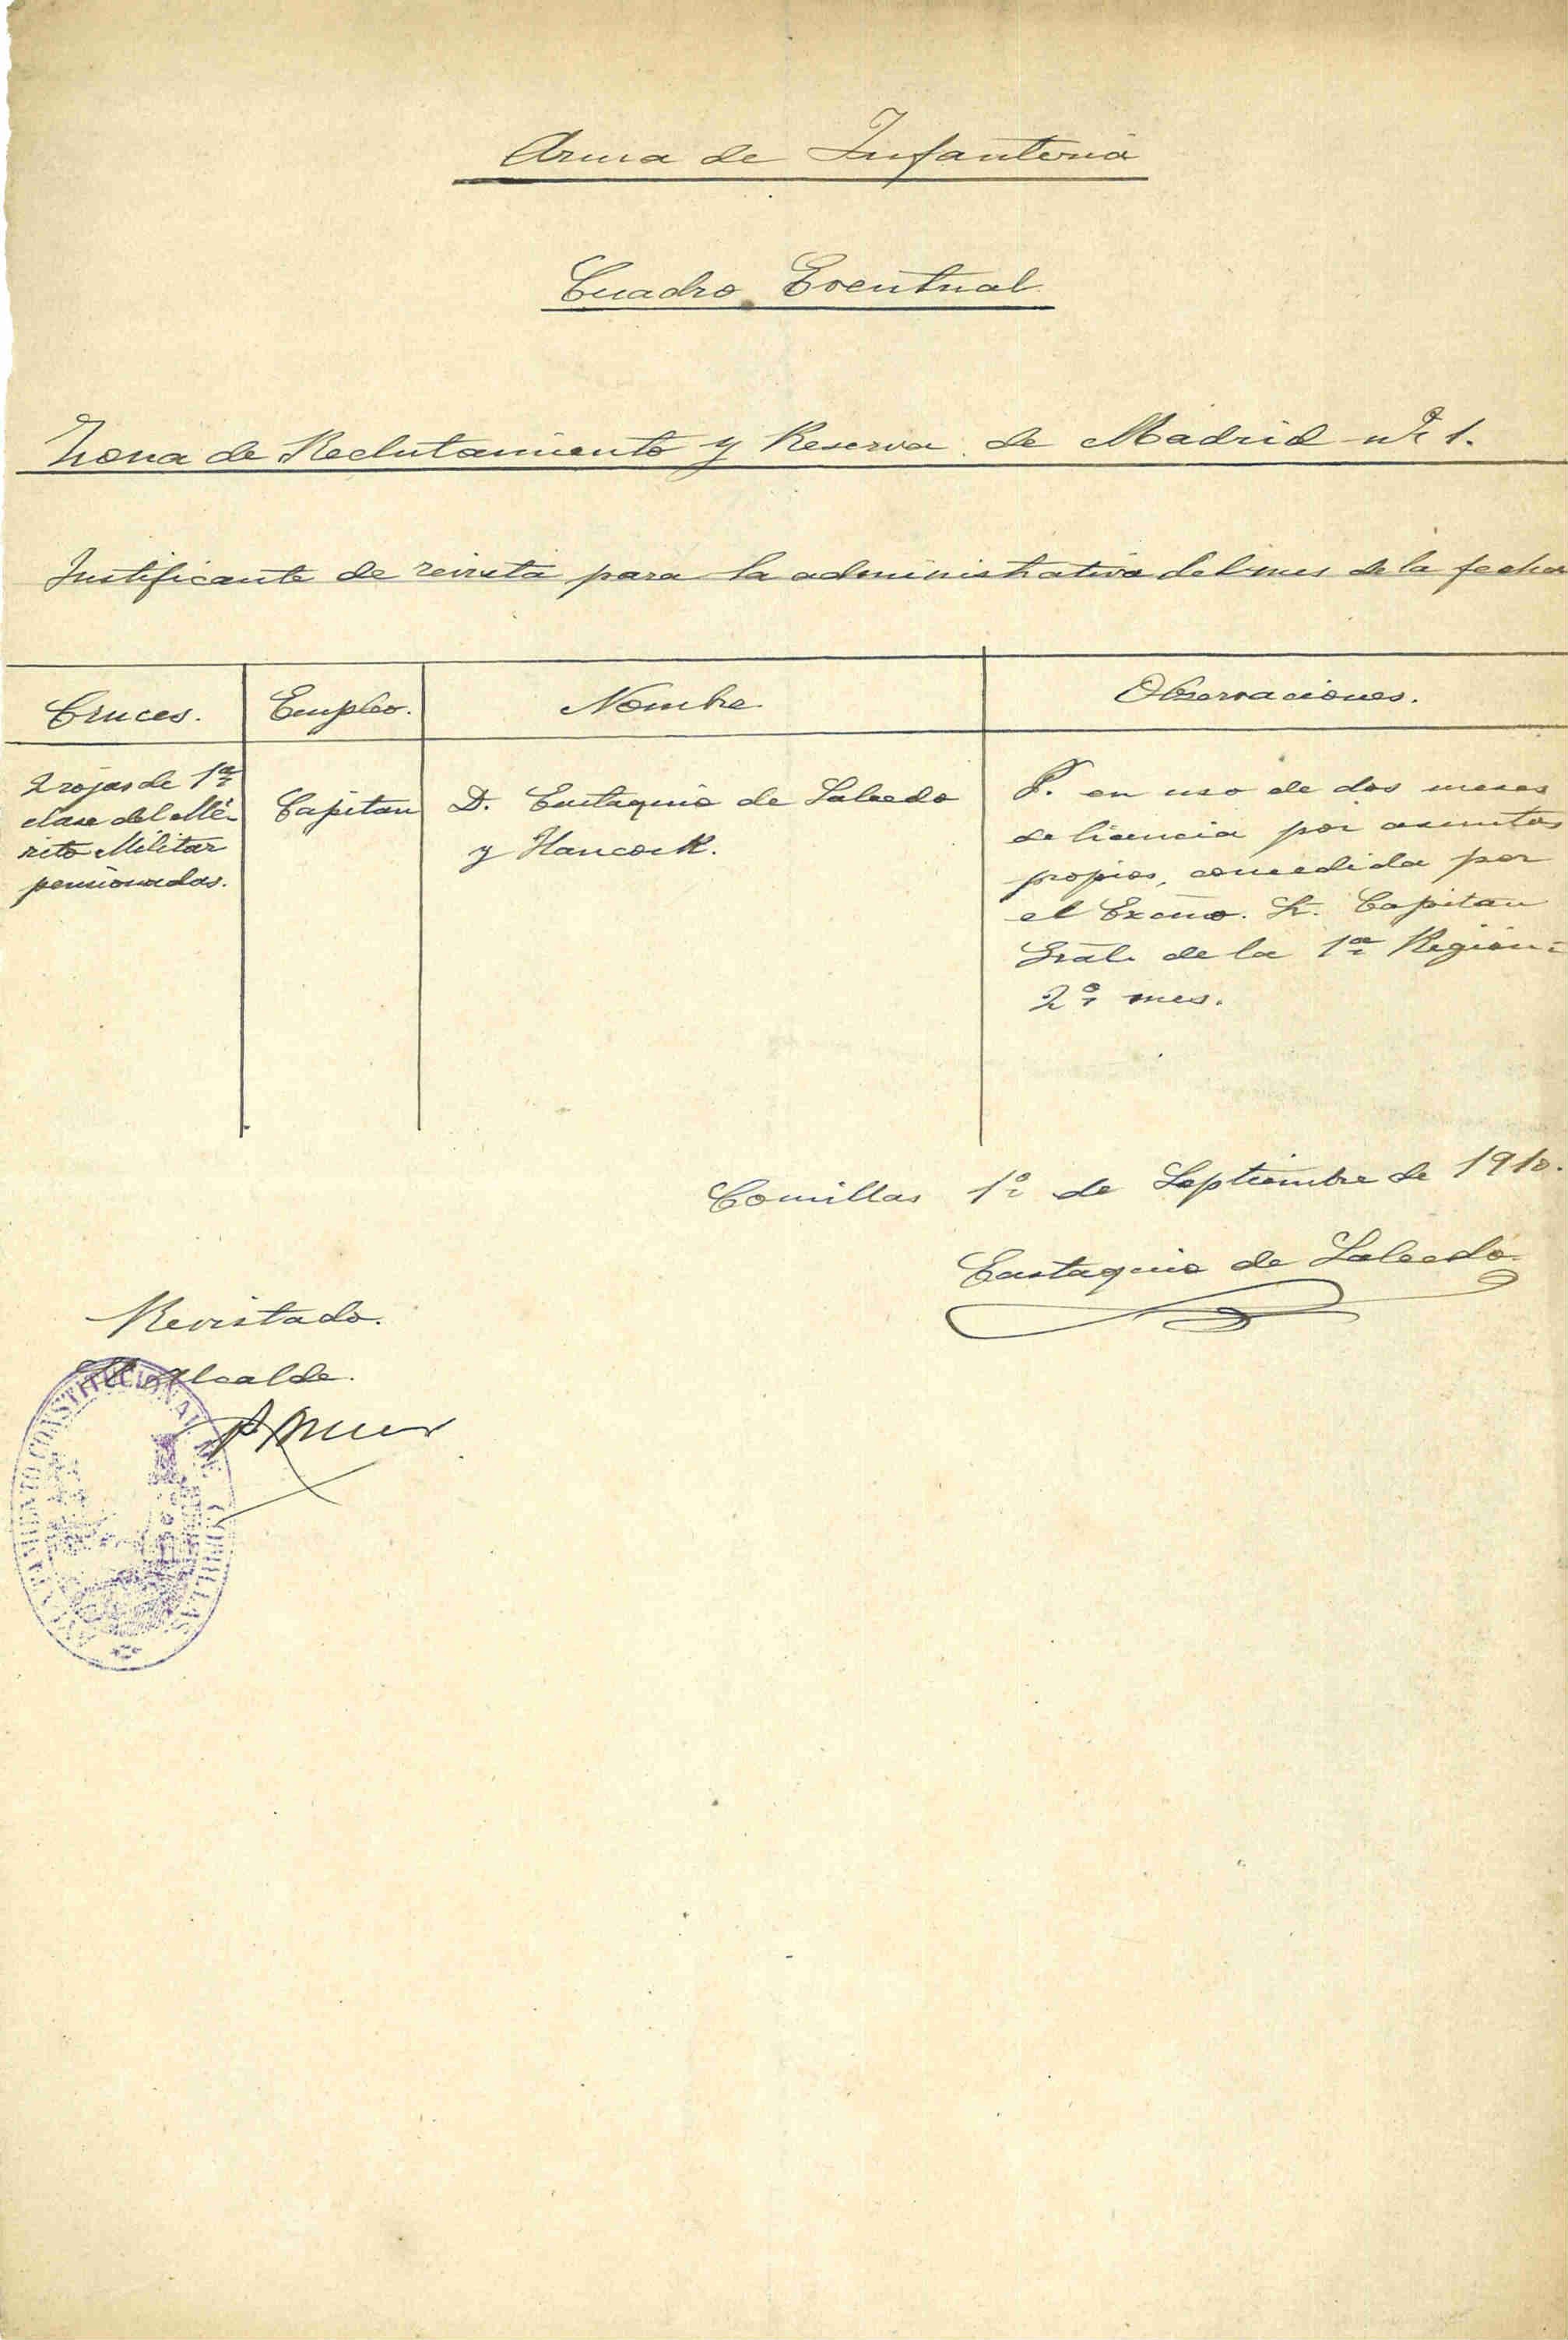 Arma de Infanteria
Cuadro Eventual
Zona de Reclutamiento y Reserva de Madrid nº 1.
Justificante de revista para la administrativa del mes de la fecha
Cruces. Empleo. Nombre Observaciones.
2 rojas de 1ª
clase del Mé-
rito Militar
pensionadas.
Capitan
D. Eustaquio de Salcedo
y Hancock.
P. en uso de dos meses
de licencia por asuntos
propios, concedida por
el Excmo. Sr. Capitan
Gral. de la 1ª Region=
2º mes.
Comillas 1º de Septiembre de 1910.
Eustaquio de Salcedo
Revistado.
El Alcalde.
AYUNTAMIENTO CONSTITUCIONAL DE COMILLAS